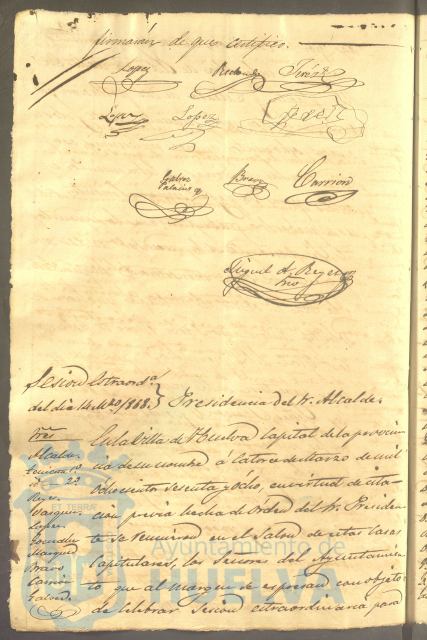 firmarán de que certifico.
Lopez Redondo
Lopez Lopez
Bravo Carrion
Miguel de
Sesion Estraord.ª
del dia 14 Mzo 1868.} Presidencia del Sr. Alcalde.
Sres. En la Villa de Huelva Capital de la provin
Alcalde. cia de su nombre á catorce de Marzo de mil
Teniente 1º ochocientos sesenta y ocho, en virtud de cita-
id. 2º
Reyes cion previa hecha de órden del Sr. Presiden-
Vazquez te se reunieron en el Salon de estas Casas
Lopez
Gonzalez Capitulares, los Señores del Ayuntamien
Marquez
Bravo to que al margen se espresan con objeto
Carrion
de celebrar Sesion extraordinaria para
Ayuntamiento de
HUELVA